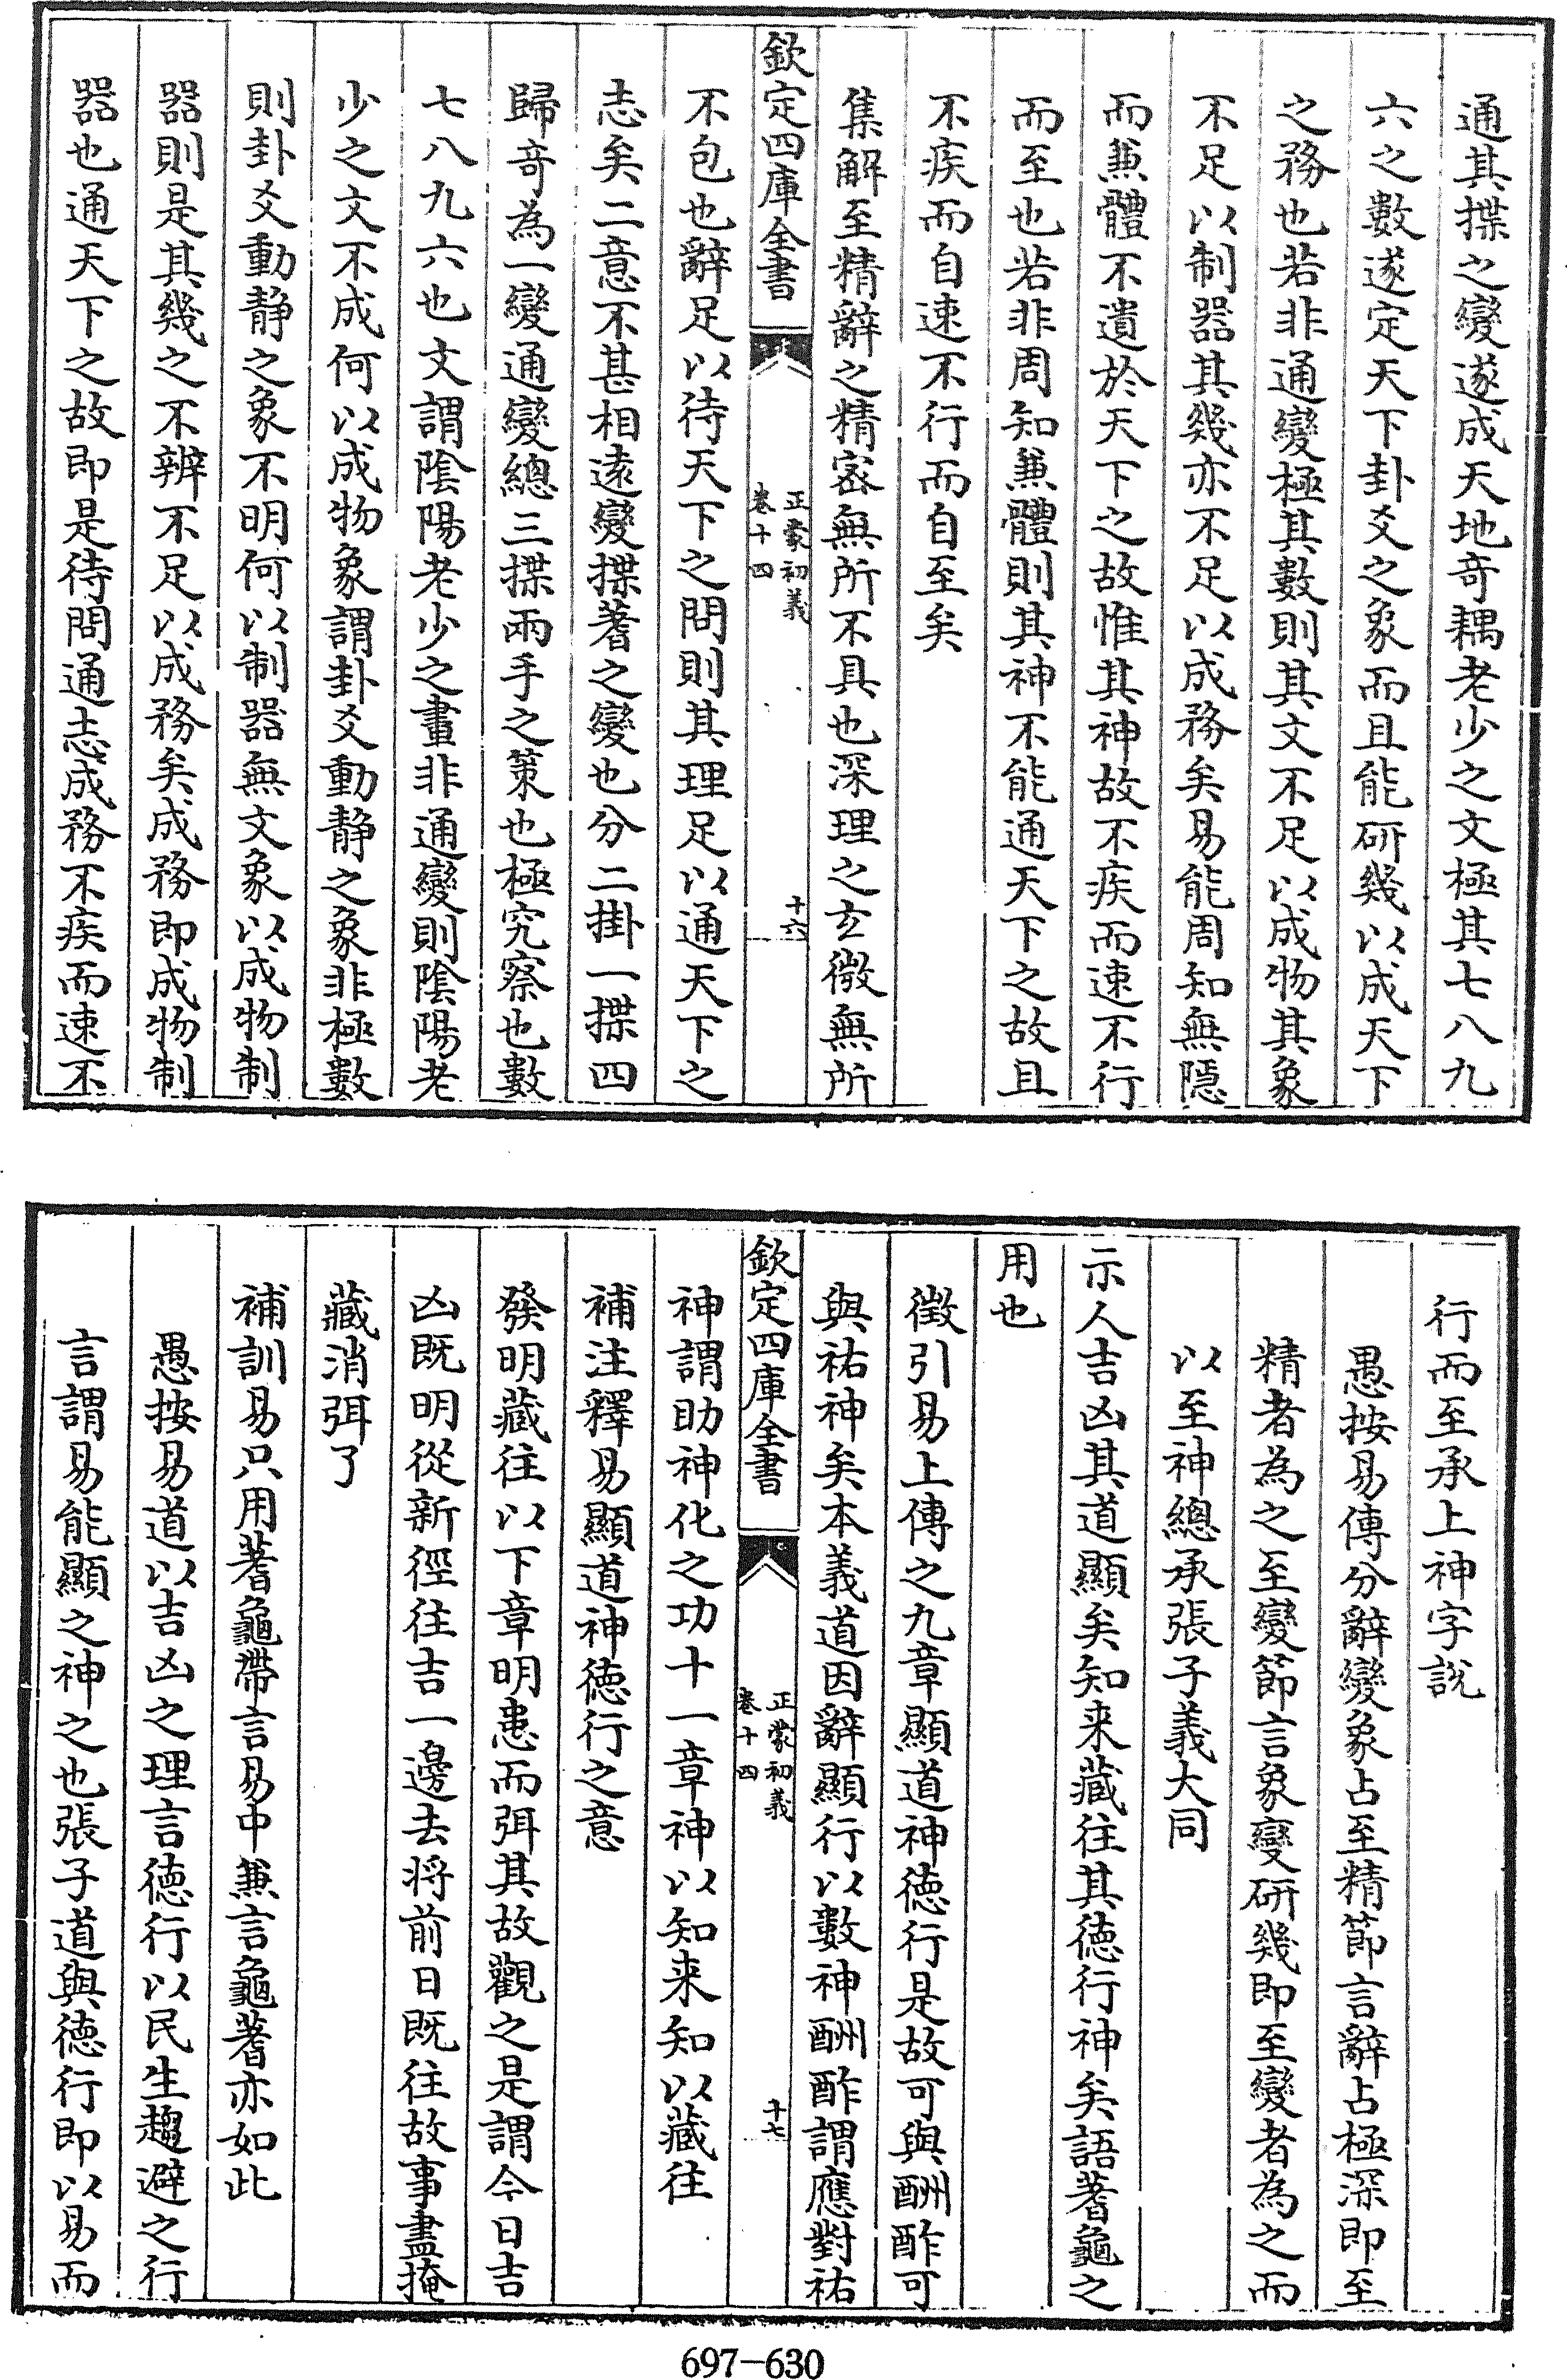 通其揲之變遂成天地竒耦老少之文極其七八九
六之數遂定天下卦爻之象而且能研幾以成天下
之務也若非通變極其數則其文不足以成物其象
不足以制器其幾亦不足以成務矣易能周知無隱
而兼體不遺於天下之故惟其神故不疾而速不行
而至也若非周知兼體則其神不能通天下之故且
不疾而自速不行而自至矣
集解至精辭之精宻無所不具也深理之𤣥微無所
欽定四庫全書
正蒙初義
卷十四
十六
不包也辭足以待天下之問則其理足以通天下之
志矣二意不甚相逺變揲蓍之變也分二掛一揲四
歸竒為一變通變總三揲兩手之策也極究察也數
七八九六也文謂隂陽老少之畫非通變則隂陽老
少之文不成何以成物象謂卦爻動静之象非極數
則卦爻動静之象不明何以制器無文象以成物制
器則是其幾之不辨不足以成務矣成務即成物制
器也通天下之故即是待問通志成務不疾而速不
行而至承上神字說
愚按易傳分辭變象占至精節言辭占極深即至
精者為之至變節言象變研幾即至變者為之而
以至神總承張子義大同
示人吉凶其道顯矣知来藏往其徳行神矣語蓍龜之
用也
徴引易上傳之九章顯道神徳行是故可與酬酢可
與祐神矣本義道因辭顯行以數神酬酢謂應對祐
欽定四庫全書
正蒙初義
卷十四
十七
神謂助神化之功十一章神以知来知以藏往
補注釋易顯道神徳行之意
發明藏往以下章明患而弭其故觀之是謂今日吉
凶既明從新徑往吉一邊去将前日既往故事盡掩
藏消弭了
補訓易只用蓍龜帶言易中兼言龜蓍亦如此
愚按易道以吉凶之理言徳行以民生趨避之行
言謂易能顯之神之也張子道與徳行即以易而
697-630